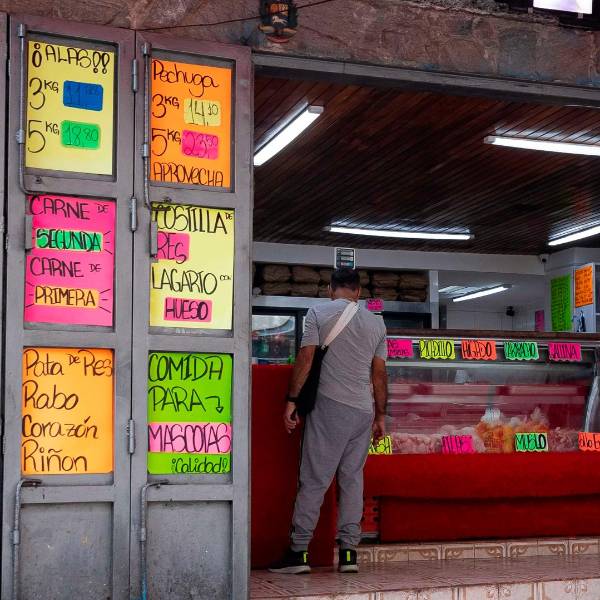 ¡ALAS!!
3 KG
5 KG 18.80
Pechuga
3 KG 14,10
5 KG 23,50
APROVECHA
CARNE DE
SEGUNDA
CARNE DE
PRIMERA
COSTILLA DE
RES
LAGARTO CON
HUESO
Pata de Res
Rabo
Corazón
Riñon
COMIDA
PARA
MASCOTAS
¡Calidad!
MUSLO